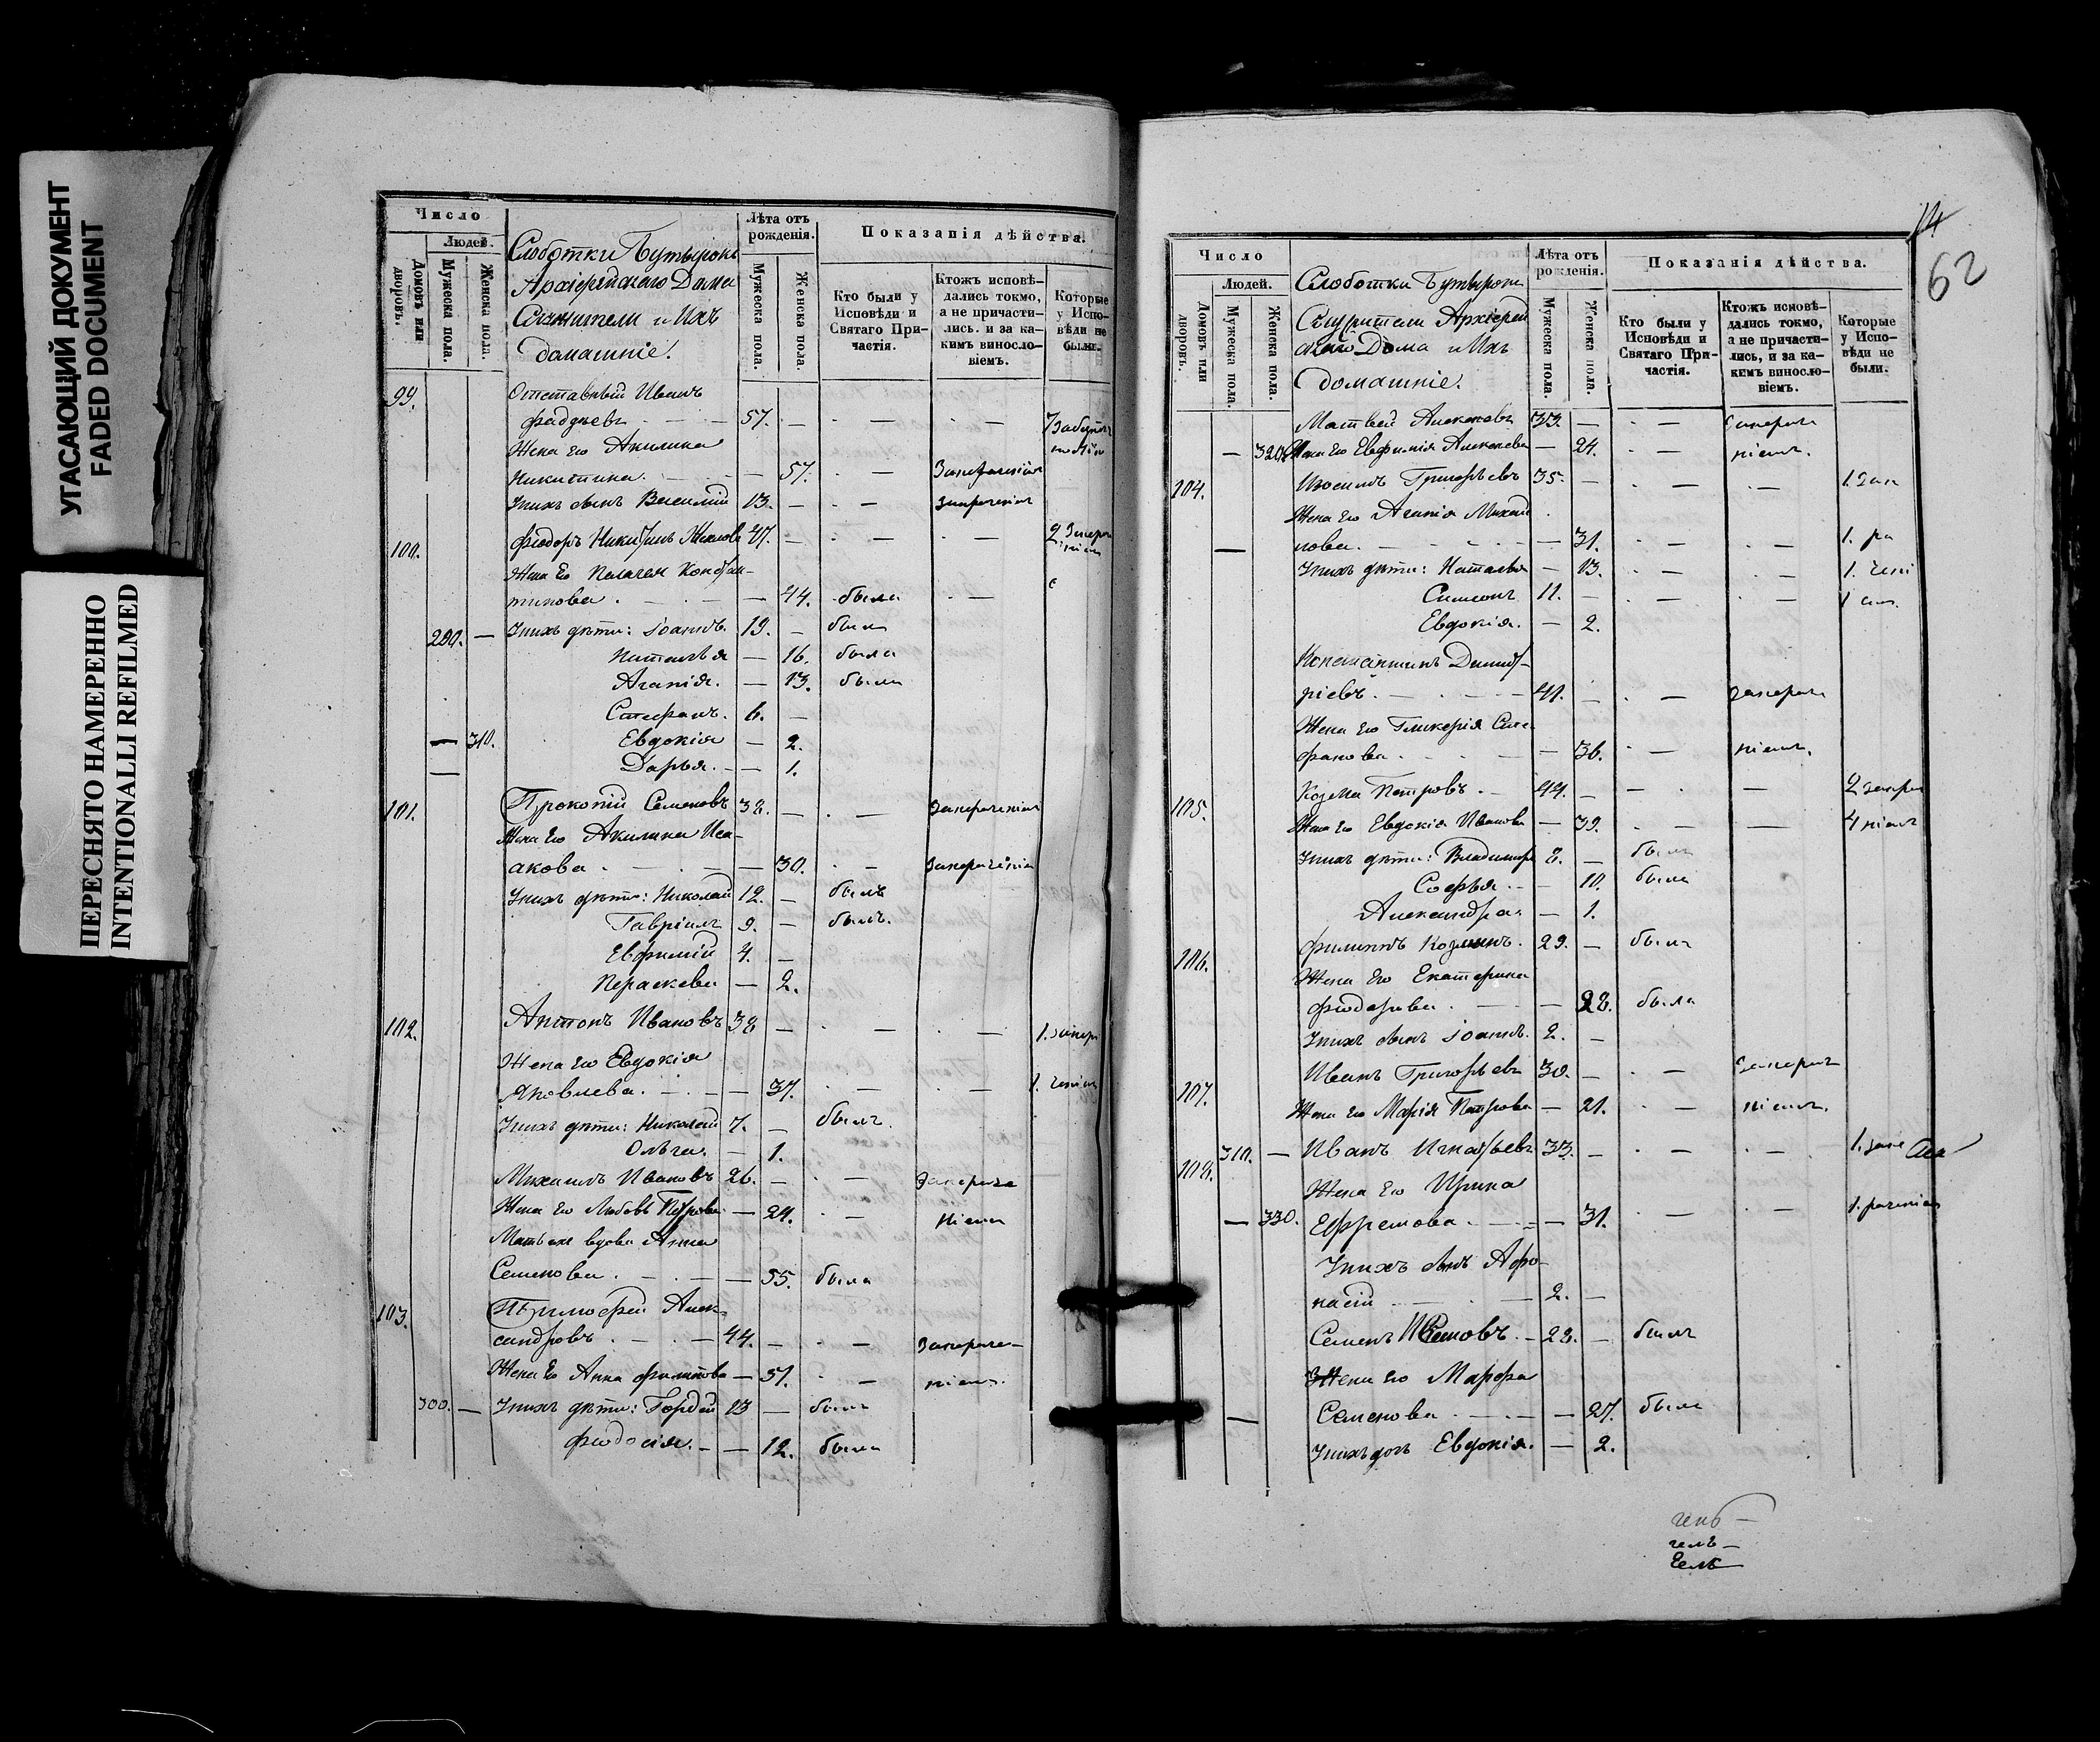 УГАСАЮЩИЙ ДОКУМЕНТ
FADED DOCUMENT
ПЕРЕСНЯТО НАМЕРЕННО
INTENTIONALLI REFILMED
Число
Людей.
Домовъ или дворовъ.
Мужеска пола.
Женска пола.
Слоботки Бутырокъ
Архіерейскаго Дома
Служители и Ихъ
домашніе.
Лѣта отъ рожденія.
Мужеска пола.
Женска пола.
Показанія дѣйства.
Кто были у Исповѣди и Святаго Причастія.
Ктожъ исповѣдались токмо, а не причастились. и за какимъ винословіемъ.
Которые у Исповѣди не были.
99. Отставный Иванъ
Фадѣевъ 57. —
Жена Его Акилина
Никитина. — 57. Заперченіем
У нихъ сынъ Василій 13. —
100. Фіодоръ Никитинъ 47. — 2.
Жена Его Пелагея Констан-
тинова. — 44. была
290. — У нихъ дѣти: Іоаннъ. 19. — былъ
Наталья — 16. была
Агапія. — 13. была
Стефанъ. 6. —
— 310. Евдокія — 2.
— Дарья. — 1.
101. Прокопій Семеновъ 38. —
Жена Его Акилина Иса-
акова. — 30.
У нихъ дѣти: Николай 12. — былъ
Гавріилъ 9. — былъ.
Евфимій 4. —
Параскева — 2.
102. Антонъ Ивановъ 38 — 1.
Жена Его Евдокія
Яковлева. — 37. 1.
У нихъ дѣти: Николай 7. — былъ.
Ольга. — 1.
Михаилъ Ивановъ 26. —
Жена Его Любовь Петрова — 24.
Мать ихъ вдова Анна
Семенова. — 55. была
103. Тимофей Алек-
сандровъ. 44. —
Жена Его Анна Филипова — 37.
300. — У нихъ дѣти: Гордей 13 — былъ
Фіодосія. — 12. была
14
62
Число
Людей.
Домовъ или дворовъ.
Мужеска пола.
Женска пола.
Слоботки Бутырокъ
Служители Архіерей
скаго Дома и Ихъ
домашніе.
Лѣта отъ рожденія.
Мужеска пола.
Женска пола.
Показанія дѣйства.
Кто были у Исповѣди и Святаго Причастія.
Ктожъ исповѣдались токмо, а не причастились, и за какимъ винословіемъ.
Которые у Исповѣди не были.
Матвей Алексеевъ 33. —
— 320. Жена Его Евфимія Алексеева — 24.
104. Григорьевъ 35. — 1.
Жена Его Агапія Михай
лова. — 31. 1.
У нихъ дѣти: Наталья — 13. 1.
Симеонъ 11. — 1
Евдокія. — 2.
Константинъ Димит-
ріевъ. 41. —
Жена Его Гликерія Сте-
фанова — 36.
105. Козма Петровъ. 44. — 2
Жена Его Евдокія Иванова — 39.
У нихъ дѣти: Владимиръ 8. — былъ
Софья. — 10. была
Александра. — 1.
106. Филиппъ Козминъ. 29. — былъ
Жена Его Екатерина
Фіодорова. — 28. была
У нихъ сынъ Іоаннъ. 2. —
107. Иванъ Григорьевъ 30. —
Жена Его Марія Петрова — 21.
108. 310. — Иванъ Игнатьевъ 33. — 1.
Жена Его Ирина
— 330. Ефремова. — 31. 1.
У нихъ сынъ Афа-
насій 2. —
Семенъ 28. — былъ
Жена Его Марфа
— Семенова — 27. была
У нихъ дочь Евдокія. — 2.